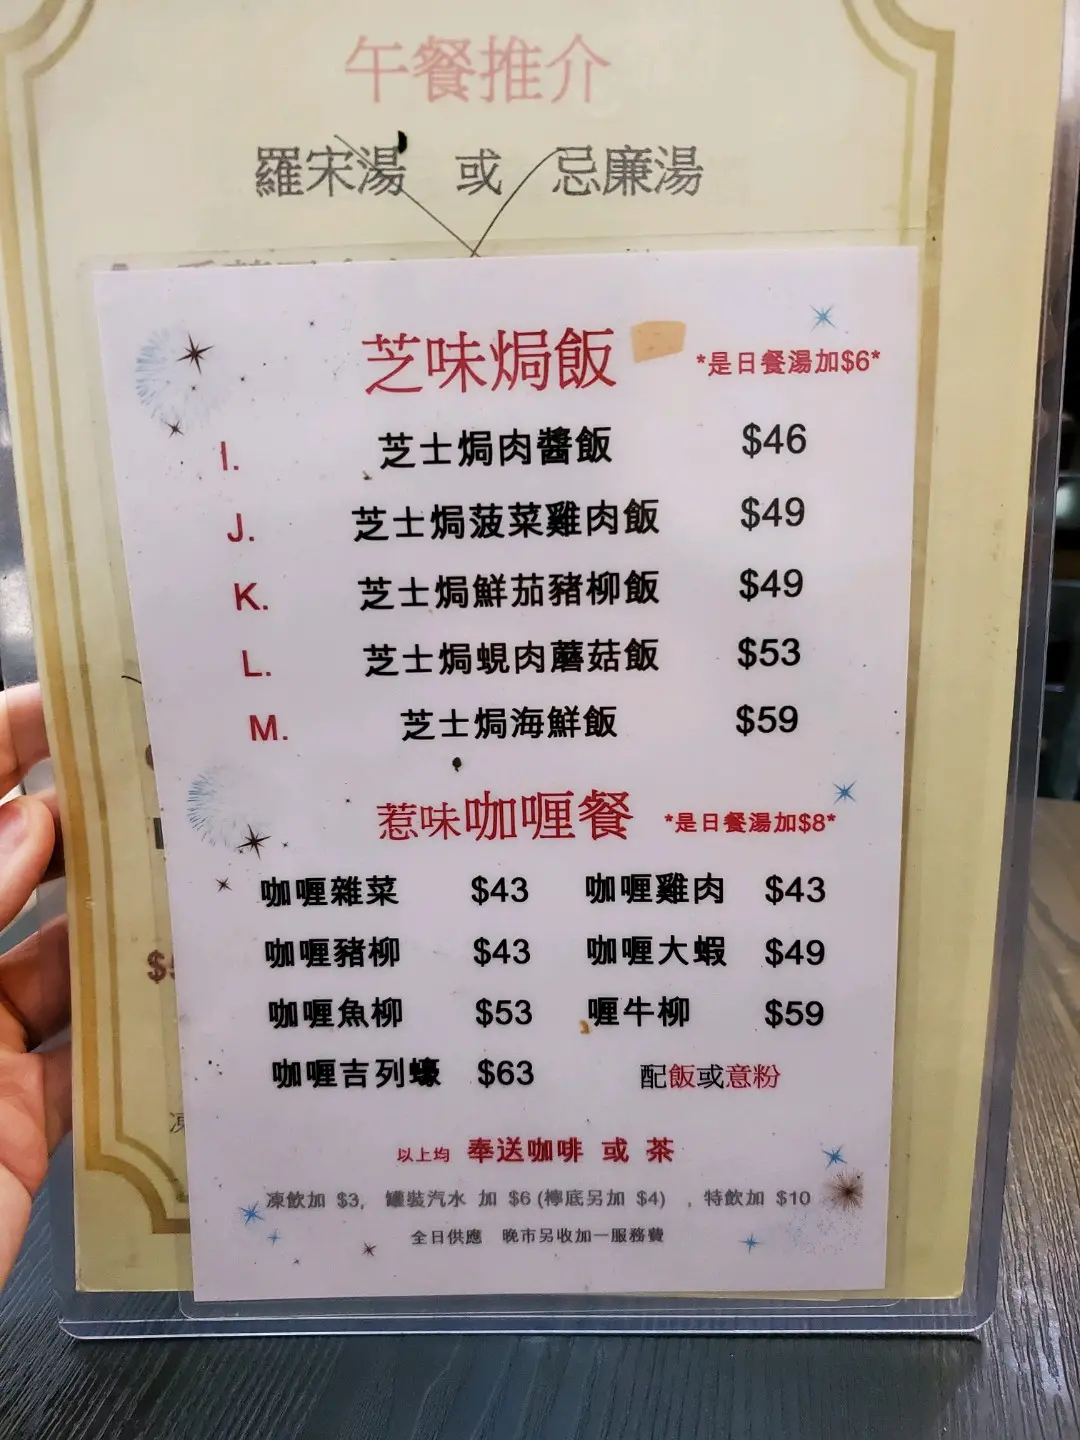 午餐推介
羅宋湯 或 忌廉湯
芝味焗飯 *是日餐湯加$6*
I. 芝士焗肉醬飯 $46
J. 芝士焗菠菜雞肉飯 $49
K. 芝士焗鮮茄豬柳飯 $49
L. 芝士焗蜆肉蘑菇飯 $53
M. 芝士焗海鮮飯 $59
惹味咖喱餐 *是日餐湯加$8*
咖喱雜菜 $43 咖喱雞肉 $43
咖喱豬柳 $43 咖喱大蝦 $49
咖喱魚柳 $53 喱牛柳 $59
咖喱吉列蠔 $63 配飯或意粉
以上均 奉送咖啡 或 茶
凍飲加 $3, 罐裝汽水 加 $6 (檸底另加 $4) , 特飲加 $10
全日供應 晚市另收加一服務費